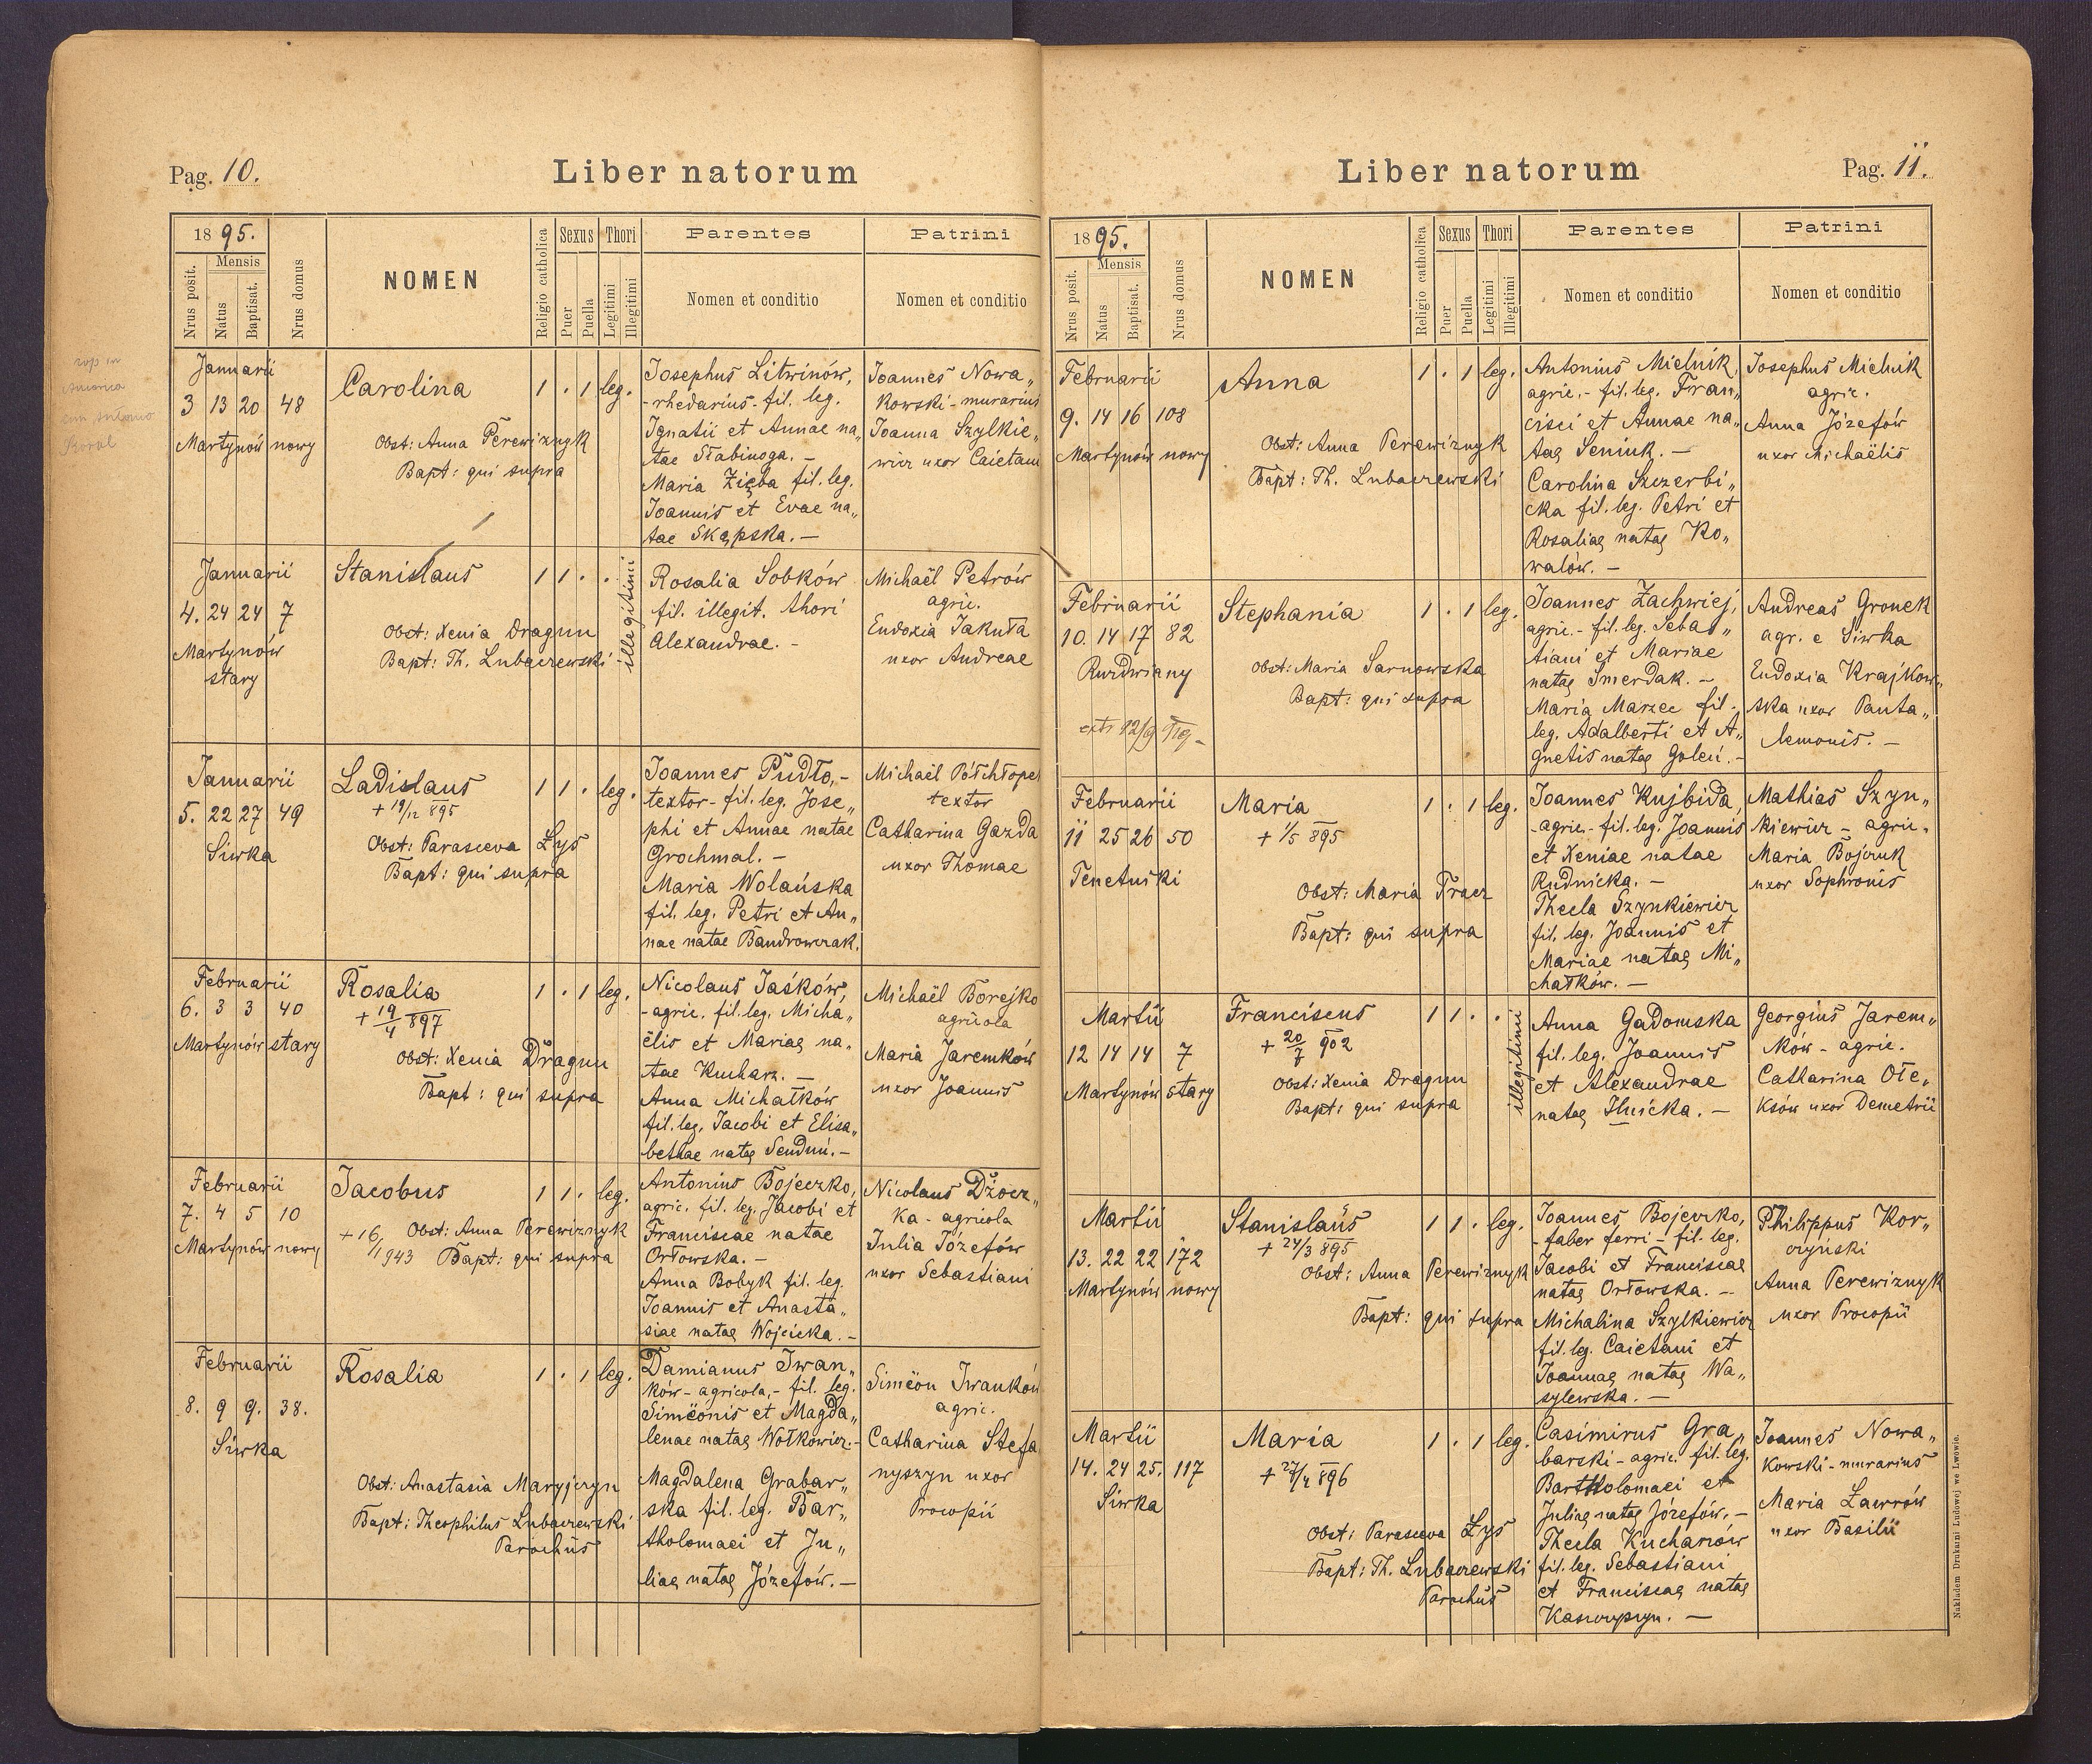 Pag. 10.
Liber natorum
1895.
Mensis
Nrus posit.
Natus
Baptisat.
Nrus domus
NOMEN
Religio catholica
Sexus
Puer
Puella
Thori
Legitimi
Illegitimi
Parentes
Nomen et conditio
Patrini
Nomen et conditio
Januarii
3 13 20 48
Martynów nowy
Carolina
Obst: Anna Perewiznyk
Bapt: qui supra
1 . 1 leg.
Josephus Litwinów,
-rhedarius- fil. leg.
Ignatii et Annae na„
tae Słabinoga. —
Maria Zięba fil. leg.
Joannis et Evae na„
tae Skąpska. —
Joannes Nowa„
kowski - murarius
Joanna Szylkie„
wicz uxor Caietani
Januarii
4. 24 24 7
Martynów
stary
Stanislaus
Obst: Xenia Dragun
Bapt: Th. Lubaczewski
1 1 . .
illegitimi
Rosalia Sobków
fil. illegit. thori
Alexandrae. -
Michaël Petrów
agric.
Eudoxia Jakuta
uxor Andreae
Januarii
5. 22 27 49
Siwka
Ladislaus
+ 19/12 895
Obst: Parasceva Łys
Bapt: qui supra
1 1 . leg.
Joannes Pudło, -
textor - fil. leg. Jose„
phi et Annae natae
Grochmal. —
Maria Wolańska
fil. leg. Petri et An„
nae natae Bandrowczak.
Michaël Półchłopek
textor
Catharina Gazda
uxor Thomae
Februarii
6. 3 3 40
Martynów stary
Rosalia
+ 19/4 897
Obst: Xenia Dragun
Bapt: qui supra
1 . 1 leg.
Nicolaus Jaśków,
- agric. fil. leg. Micha„
ëlis et Mariae na„
tae Kucharz. —
Anna Michałków
fil. leg. Jacobi et Elisa„
bethae natae Senduń. -
Michaël Borejko
agricola
Maria Jaremków
uxor Joannis
Februarii
7. 4 5 10
Martynów nowy
Jacobus
+ 16/1 1943
Obst: Anna Perewiznyk
Bapt: qui supra
1 1 . leg.
Antonius Bojeczko,
agric. fil. leg. Jacobi et
Franciscae natae
Orłowska. —
Anna Bobyk fil. leg.
Joannis et Anasta„
siae natae Wojcicka. -
Nicolaus Dżocz„
ka - agricola
Julia Józefów
uxor Sebastiani
Februarii
8. 9 9. 38.
Siwka
Rosalia
Obst: Anastasia Maryjczyn
Bapt: Theophilus Lubaczewski
Parochus
1 . 1 leg.
Damianus Iwan„
ków - agricola, - fil. leg.
Simëonis et Magda„
lenae natae Wołkowicz. -
Magdalena Grabar„
ska fil. leg. Bar„
tholomaei et Ju„
liae natae Józefów. —
Simëon Iwanków
agric.
Catharina Stefa
nyszyn uxor
Procopii
Liber natorum
Pag. 11.
1895.
Mensis
Nrus posit.
Natus
Baptisat.
Nrus domus
NOMEN
Religio catholica
Sexus
Puer
Puella
Thori
Legitimi
Illegitimi
Parentes
Nomen et conditio
Patrini
Nomen et conditio
Februarii
9. 14 16 108
Martynów nowy
Anna
Obst: Anna Perewiznyk
Bapt: Th. Lubaczewski
1 . 1 leg.
Antonius Mielnik,
agric. - fil. leg. Fran„
cisci et Annae na„
tae Seniuk. —
Carolina Szczerbi„
cka fil. leg. Petri et
Rosaliae natae Ko„
walów. —
Josephus Mielnik
agric.
Anna Józefów
uxor Michaëlis
Februarii
10. 14 17 82
Kurdwiany
Stephania
Obst: Maria Sarnowska
Bapt: qui supra
1 . 1 leg.
Joannes Zachwiej,
agric. - fil. leg. Sebas„
tiani et Mariae
natae Smerdak. —
Maria Marzec fil.
leg. Adalberti et A„
gnetis natae Goleń. -
Andreas Gronek
agr. e Siwka
Eudoxia Krajkow„
ska uxor Panta„
lemonis. —
Februarii
11 25 26 50
Tenetniski
Maria
+ 1/5 895
Obst: Maria Tracz
Bapt: qui supra
1 . 1 leg.
Joannes Kujbida
- agric. - fil. leg. Joannis
et Xeniae natae
Rudnicka. —
Thecla Szynkiewicz
fil. leg. Joannis et
Mariae natae Mi„
chałków. —
Mathias Szyn„
kiewicz - agric.
Maria Bojczuk
uxor Sophronis
Martii
12 14 14 7
Martynów stary
Franciscus
+ 20/7 902
Obst: Xenia Dragun
Bapt: qui supra
1 1 . .
illegitimi
Anna Gadomska
fil. leg. Joannis
et Alexandrae
natae Ilnicka. —
Georgius Jarem„
ków - agric.
Catharina Ole„
ksów uxor Demetrii
Martii
13. 22 22 172
Martynów nowy
Stanislaus
+ 24/3 895
Obst: Anna Perewiznyk
Bapt: qui supra
1 1 . leg.
Joannes Bojeczko,
- faber ferri - fil. leg.
Jacobi et Franciscae
natae Orłowska. —
Michalina Szylkiewicz
fil. leg. Caietani et
Joannae natae Wa„
sylewska. —
Philippus Kor„
czyński
Anna Perewiznyk
uxor Procopii
Martii
14. 24 25. 117
Siwka
Maria
Obst: Parasceva Łys
Bapt: Th. Lubaczewski
Parochus
1 . 1 leg.
Casimirus Gra„
barski - agric. fil. leg.
Bartholomaei et
Juliae natae Józefów. -
Thecla Kucharów
fil. leg. Sebastiani
et Franciscae natae
Joannes Nowa„
kowski - murarius
Maria Ławrów
uxor Basilii
Nakładem Drukarni Ludowej we Lwowie.